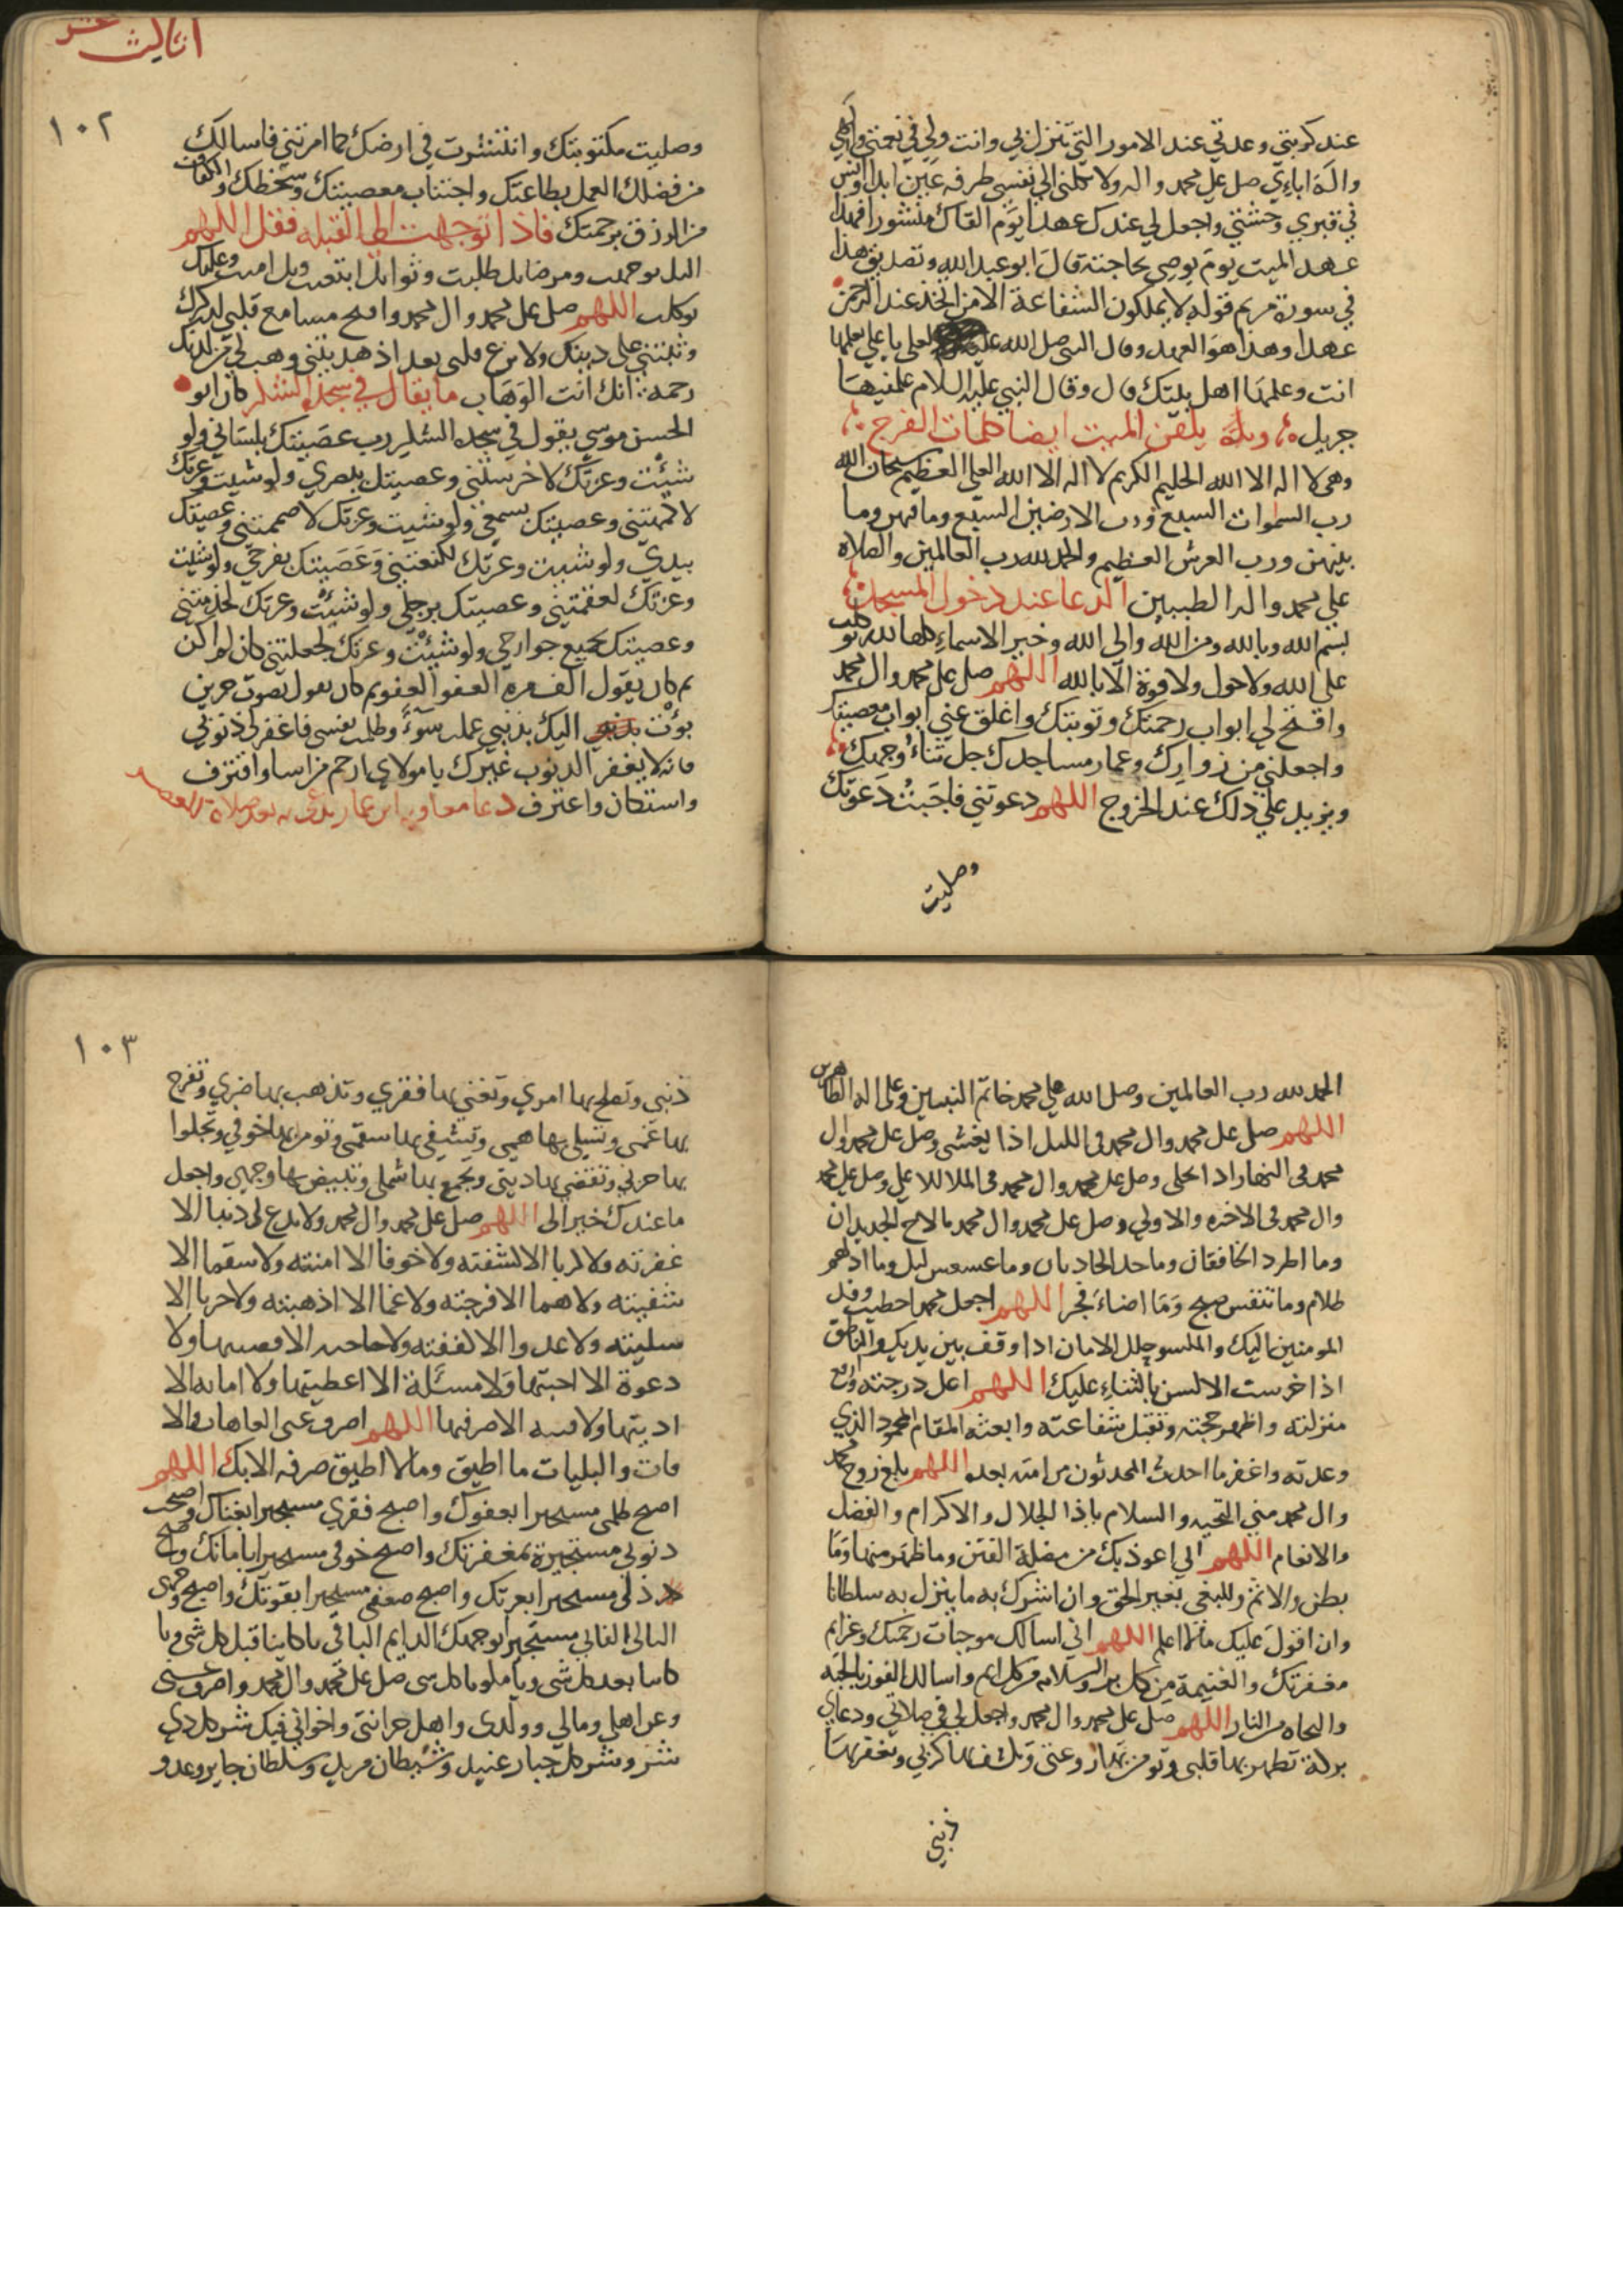 عند كربتي وعدتي عند الامور التي تنزل بي وانت ولي في نعمتي والهي
واله اباءي صل على محمد واله ولا تكلني الى نفسي طرفه عين ابدا وانس
في قبري وحشتي واجعل لي عندك عهدا يوم القاك منشورا فهذا
عهد الميت يوم يوصي بحاجته قال ابو عبد الله وتصديق هذا
في سورة مريم قوله لا يملكون الشفاعة الا من اتخذ عند الرحمن
عهدا وهذا هو العهد وقال النبي صلى الله عليه لعلي يا علي تعلمها
انت وعلمها اهل بيتك قال وقال النبي عليه السلام علمنيها
جبريل يلقن الميت ايضا كلمات الفرج
وهي لا اله الا الله الحليم الكريم لا اله الا الله العلي العظيم سبحان الله
رب السموات السبع ورب الارضين السبع وما فيهن وما
بينهن ورب العرش العظيم والحمد لله رب العالمين والصلاه
على محمد واله الطيبين الدعا عند دخول المسجد
بسم الله وبالله ومن الله والى الله وخير الاسماء كلها لله توكلت
على الله ولا حول ولا قوة الا بالله اللهم صل على محمد وال محمد
وافتح لي ابواب رحمتك وتوبتك واغلق عني ابواب معصيتك
واجعلني من زوارك وعمار مساجدك جل ثناء وجهك
ويزيد على ذلك عند الخروج اللهم دعوتني فاجبت دعوتك
وصليت
اثالث عشر
١٠٢
وصليت مكتوبتك وانتشرت في ارضك كما امرتني فاسالك
من فضلك العمل بطاعتك واجتناب معصيتك وسخطك والكفاف
من الرزق برحمتك فاذا توجهت الى القبله فقل اللهم
اليك توجهت ومرضاتك طلبت وثوابك ابتغيت وبك امنت وعليك
توكلت اللهم صل على محمد وال محمد وافتح مسامع قلبي لذكرك
وثبتني على دينك ولا تزغ قلبي بعد اذ هديتني وهب لي من لدنك
رحمة انك انت الوهاب ما يقال في سجدة الشكر كان ابو
الحسن موسى يقول في سجده الشكر رب عصيتك بلساني ولو
شئت وعزتك لاخرستني وعصيتك ببصري ولو شيت وعزتك
لاكمهتني وعصيتك بسمعي ولو شيت وعزتك لاصممتني وعصيتك
بيدي ولو شيت وعزتك لكنعتني وعصيتك بفرجي ولو شيت
وعزتك لعقمتني وعصيتك برجلي ولو شئت وعزتك لجذمتني
وعصيتك بجميع جوارحي ولو شئت وعزتك لجعلتني كان لم اكن
ثم كان يقول الف مره العفو العفو ثم كان يقول بصوت حزين
بؤت اليك بذنبي عملت سوءً وظلمت نفسي فاغفر لي ذنوبي
فانه لا يغفر الذنوب غيرك يا مولاي ارحم من اسا واقترف
واستكان واعترف دعا معاويه ابن عمار يدعى به بعد صلاة العصر
الحمد لله رب العالمين وصلى الله على محمد خاتم النبيين وعلى اله الطاهرين
اللهم صل على محمد وال محمد في الليل اذا يغشى وصل على محمد وال
محمد في النهار اذا تجلى وصل على محمد وال محمد في الملا الاعلى وصل على محمد
وال محمد في الاخره والاولى وصل على محمد وال محمد ما لاح الجديدان
وما اطرد الخافقان وما حدا الحاديان وما عسعس ليل وما ادلهم
ظلام وما تنفس صبح وما اضاء فجر اللهم اجعل محمدا خطيب وفد
المومنين اليك والمكسو حلل الامان اذا وقف بين يديك والناطق
اذا خرست الالسن بالثناء عليك اللهم اعل درجته وارفع
منزلته واظهر حجته وتقبل شفاعته وابعثه المقام المحمود الذي
وعدته واغفر ما احدث المحدثون من امته بعده اللهم بلغ روح محمد
وال محمد مني التحيه والسلام يا ذا الجلال والاكرام والفضل
والانعام اللهم اني اعوذ بك من مضلة الفتن وما ظهر منها وما
بطن والاثم والبغي بغير الحق وان اشرك به ما ينزل به سلطانا
وان اقول عليك ما لا اعلم اللهم اني اسالك موجبات رحمتك وعزايم
مغفرتك والغنيمة من كل بر والسلامه من كل اثم واسالك الفوز بالجنه
والنجاه من النار اللهم صل على محمد وال محمد واجعل لي في صلاتي ودعاي
بركة تطهر بها قلبي وتومن بها روعتي وتكشف بها كربي وتغفر بها
ذنبي
١٠٣
ذنبي وتصلح بها امري وتغني بها فقري وتذهب بها ضري وتفرج
بها غمي وتسلي بها همي وتشفي بها سقمي وتومن بها خوفي وتجلوا
بها حزني وتقضي بها ديني وتجمع بها شملي وتبيض بها وجهي واجعل
ما عندك خيرا لي اللهم صل على محمد وال محمد ولا تدع لي ذنبا الا
غفرته ولا كربا الا كشفته ولا خوفا الا امنته ولا سقما الا
شفيته ولا هما الا فرجته ولا غما الا اذهبته ولا حزنا الا
سليته ولا عدوا الا كفيته ولا حاجه الا قضيتها ولا
دعوة الا اجبتها ولا مسئلة الا اعطيتها ولا امانه الا
اديتها ولا فتنه الا صرفتها اللهم اصرف عني العاهات والا
فات والبليات ما اطيق وما لا اطيق صرفه الا بك اللهم
اصبح ظلمي مستجيرا بعفوك واصبح فقري مستجيرا بغناك واصبحت
ذنوبي مستجيرة بمغفرتك واصبح خوفي مستجيرا بامانك واصبح
ذلي مستجيرا بعزتك واصبح ضعفي مستجيرا بقوتك واصبح وجهي
البالي الفاني مستجيرا بوجهك الدايم الباقي يا كاينا قبل كل شي ويا
كاينا بعد كل شي ويا مكون كل شي صل على محمد وال محمد واصرف عني
وعن اهلي ومالي وولدي واهل حزانتي واخواني فيك شر كل ذي
شر وشر كل جبار عنيد وشيطان مريد وسلطان جاير وعدو